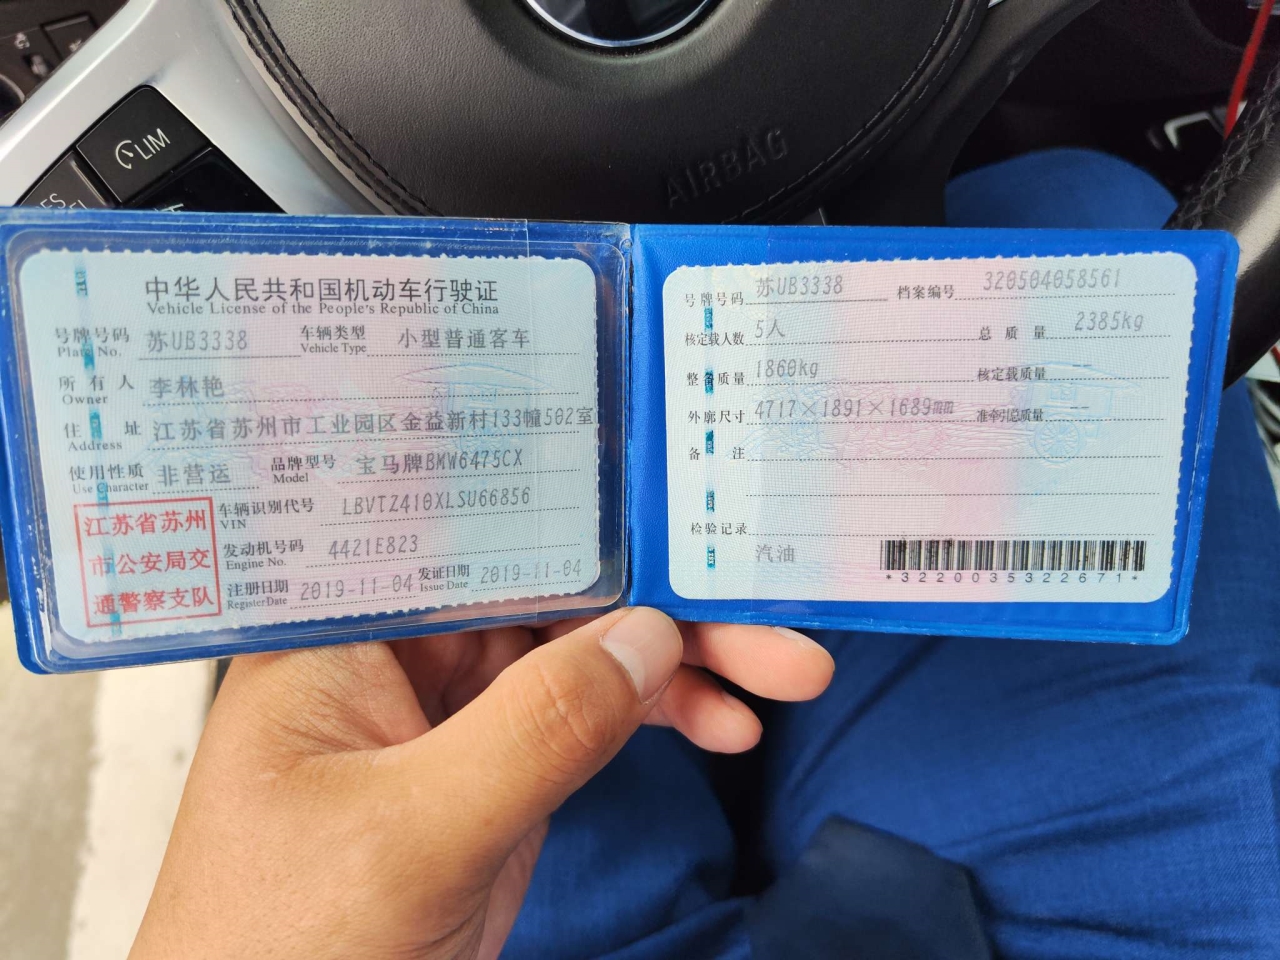 LIM
RES
AIRBAG
中华人民共和国机动车行驶证
Vehicle License of the People's Republic of China
号牌号码 苏UB3338 车辆类型 小型普通客车
Plate No. Vehicle Type
所有人 李林艳
Owner
住址 江苏省苏州市工业园区金益新村133幢502室
Address
使用性质 非营运 品牌型号 宝马牌BMW6475CX
Use Character Model
江苏省苏州
市公安局交
通警察支队
车辆识别代号 LBVTZ410XLSU66856
VIN
发动机号码 4421E823
Engine No.
注册日期 2019-11-04 发证日期 2019-11-04
Register Date Issue Date
号牌号码 苏UB3338 档案编号 320504058561
核定载人数 5人 总质量 2385kg
整备质量 1860kg 核定载质量 --
外廓尺寸 4717×1891×1689mm 准牵引总质量 --
备注
检验记录
汽油
*3220035322671*